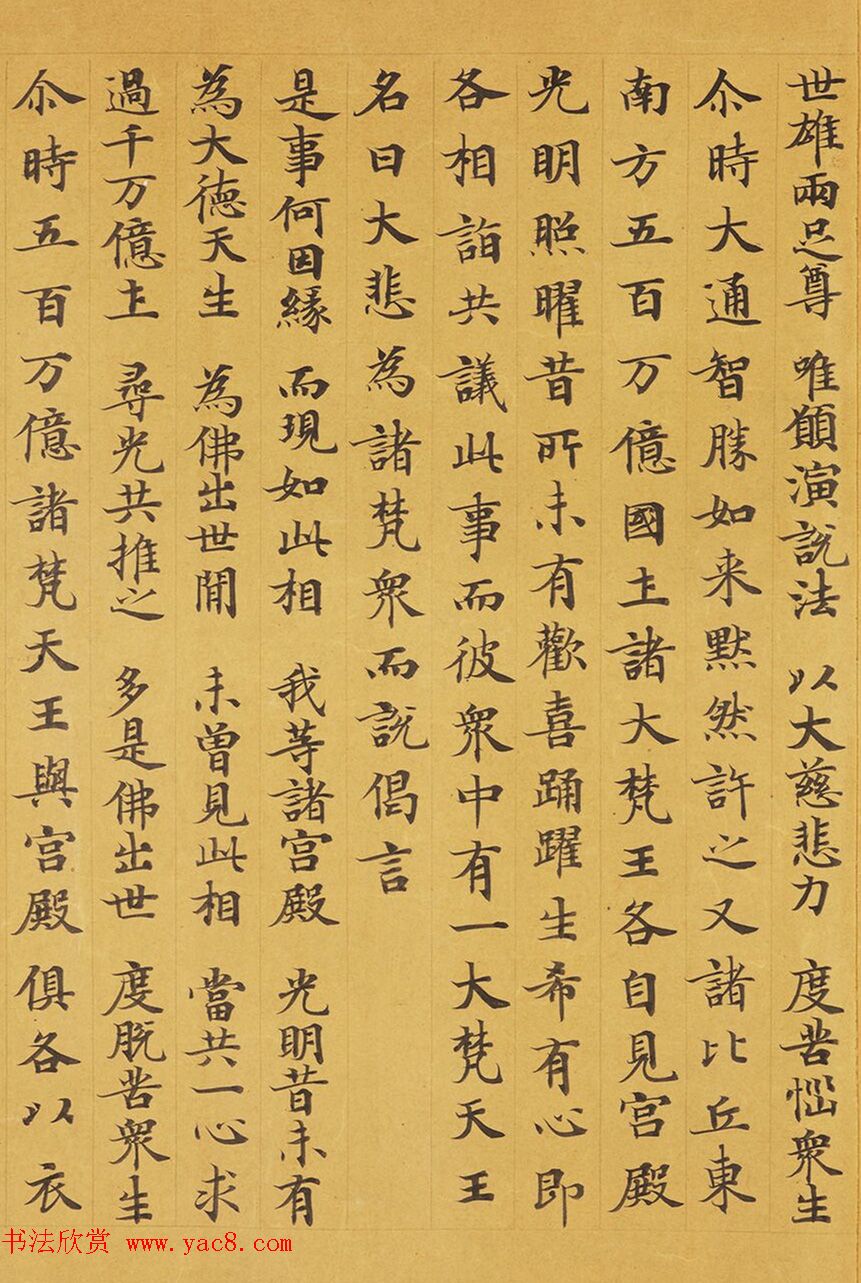 世雄兩足尊　唯願演說法　以大慈悲力　度苦惱衆生
尒時大通智勝如来默然許之又諸比丘東
南方五百万億國土諸大梵王各自見宮殿
光明照曜昔所未有歡喜踊躍生希有心即
各相詣共議此事而彼衆中有一大梵天王
名曰大悲為諸梵衆而說偈言
是事何因緣　而現如此相　我等諸宮殿　光明昔未有
為大德天生　為佛出世間　未曾見此相　當共一心求
過千万億土　尋光共推之　多是佛出世　度脫苦衆生
尒時五百万億諸梵天王與宮殿俱各以衣
书法欣赏 www.yac8.com